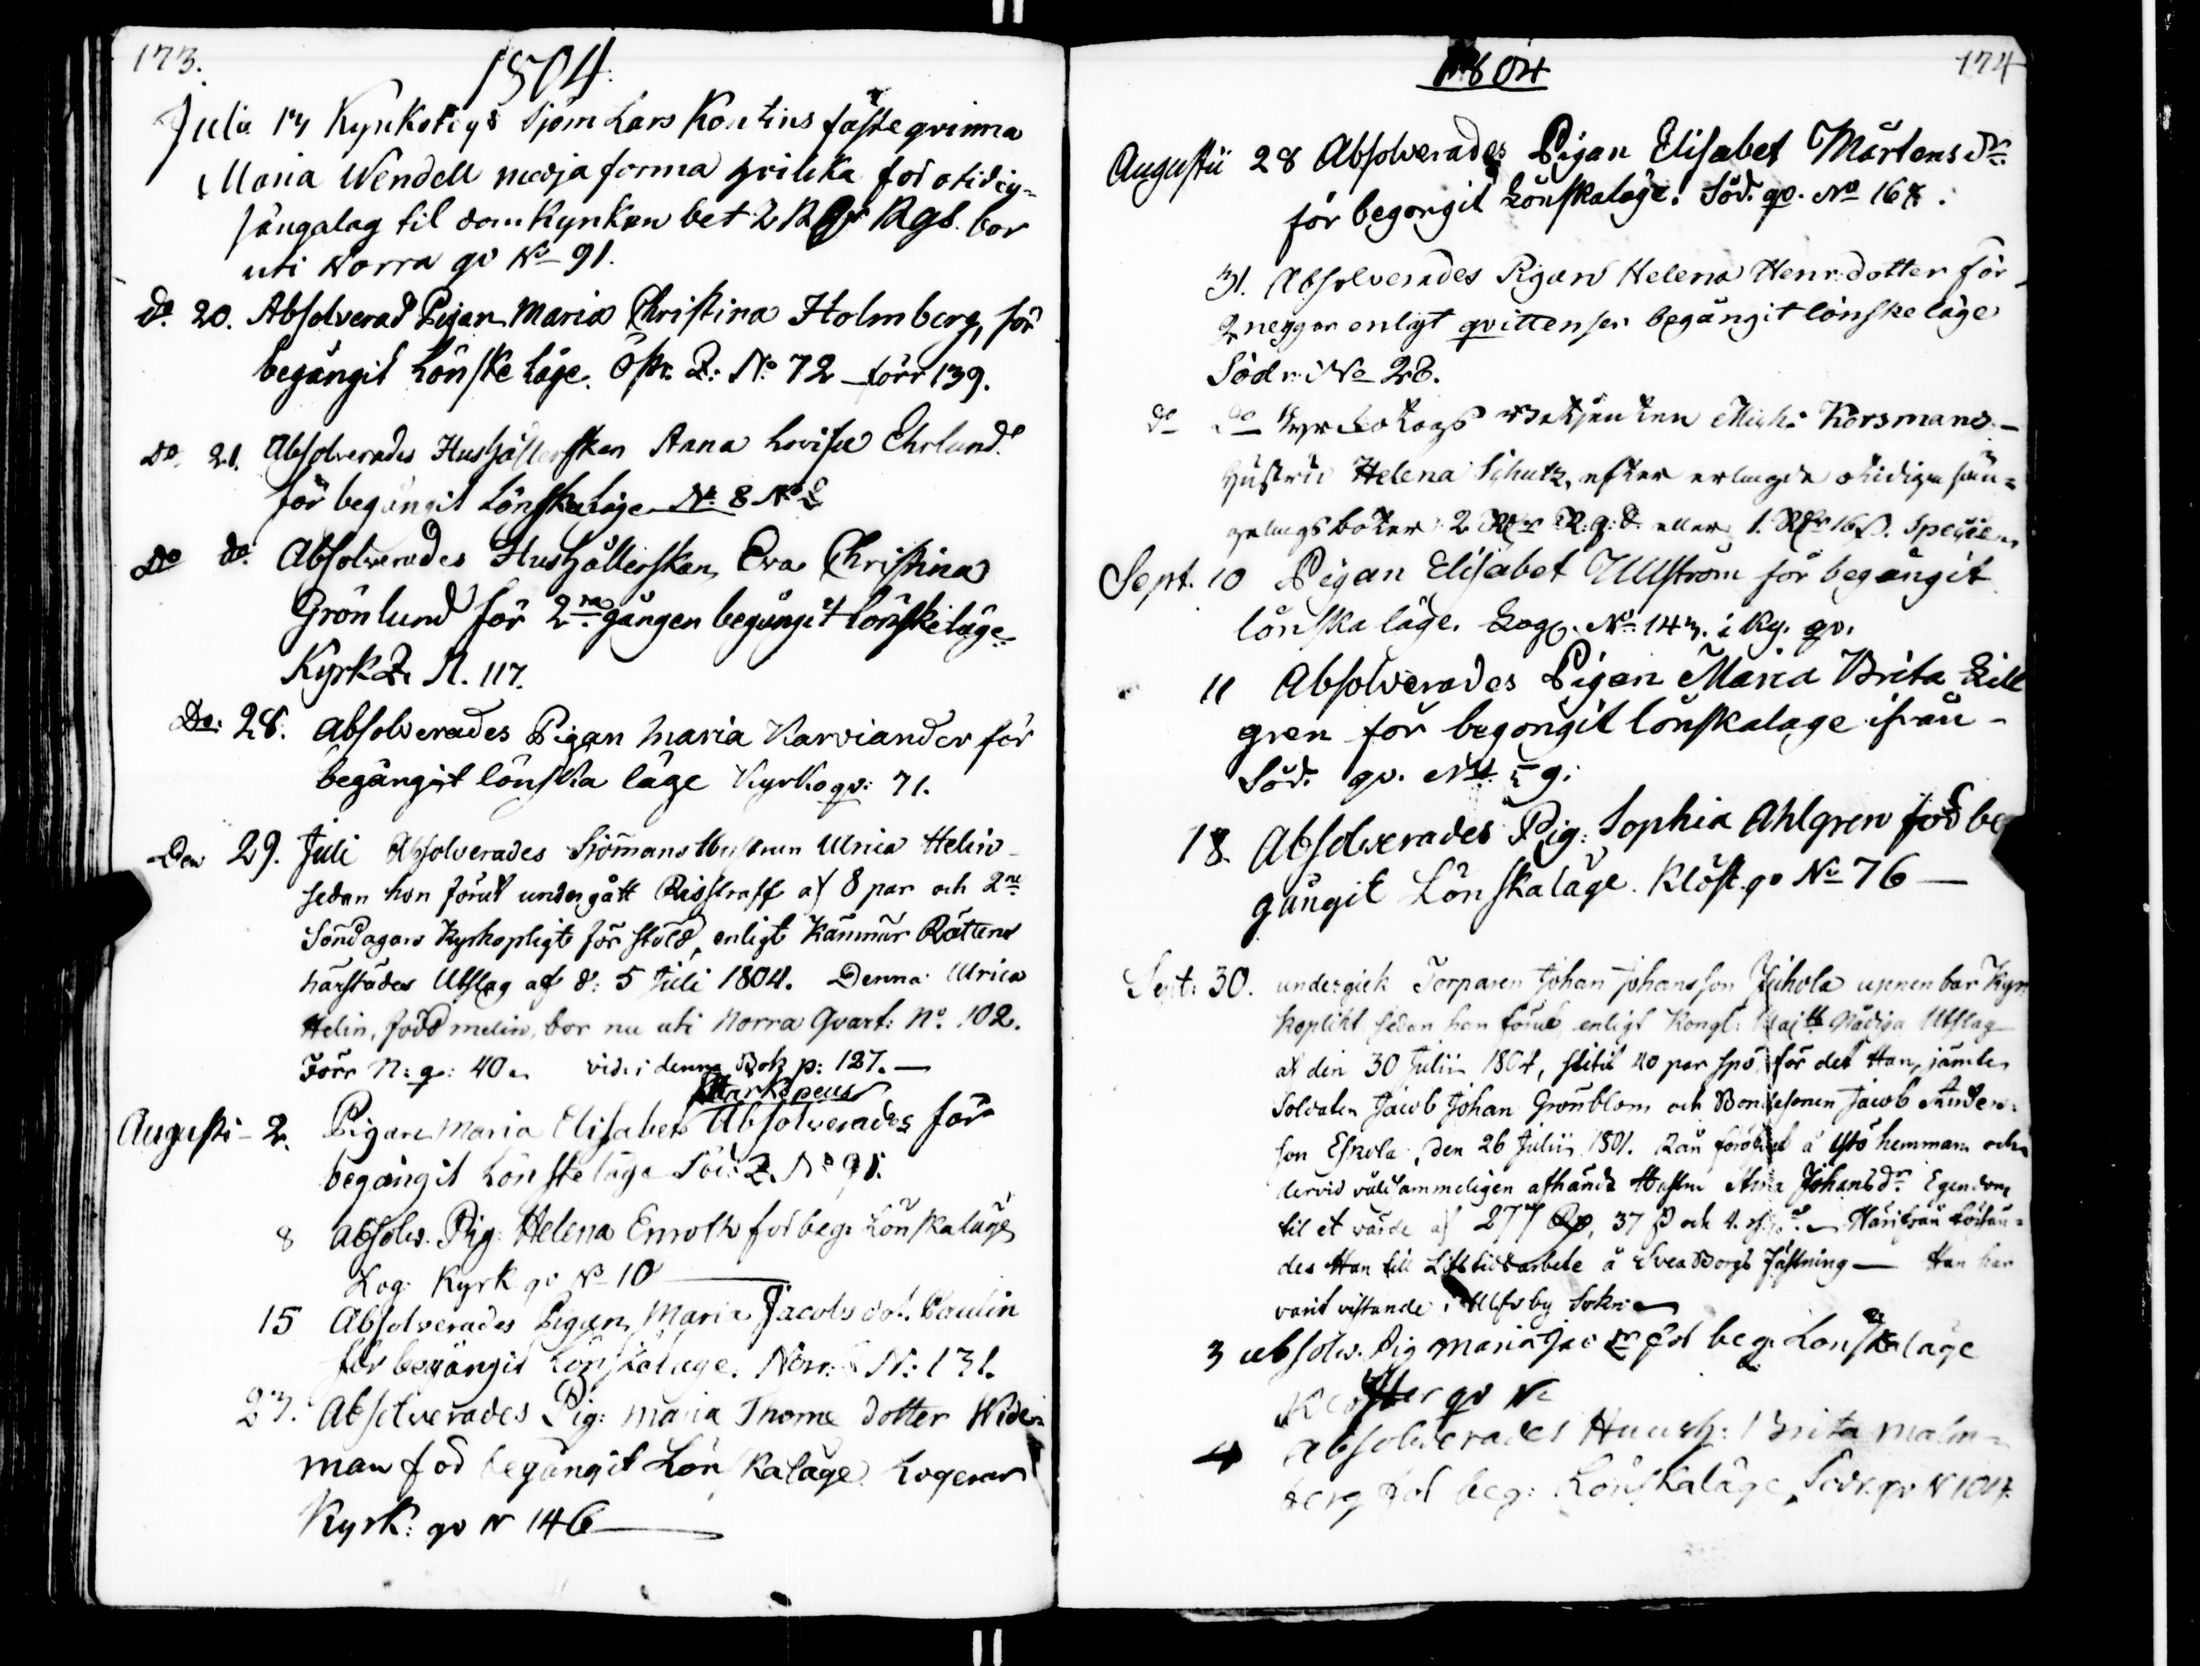 173.
1804.
Julii 13 Kyrkotogs Sjöm Lars Kontins fästeqvinna
Maria Wendell medja forma för otidig-
sängalag til domkyrkan bet 2 R Rgs. bor
uti Norra qv No 91.
do. 20. Absolverad Pigan Maria Christina Holmberg, för
begångit Lönske läge. Östr. Q: No 72 - förr 139.
do. 21. Absolverades Hushållerskan Anna Lovisa Ehrlund
för begångit Lönskaläge No 8
do do. Absolverades Hushållerskan Eva Christina
Grönlund för 2ra gången begångit lönskeläge
Kyrk Q. N. 117.
Do: 28. Absolverades Pigan Maria Karviander för
begångit lönska läge Kyrko qv: 71.
Den 29. Juli Absolverades Sjömans Hustrun Ulrica Helin
sedan hon förut undergått Risstraff af 8 par och 2ne
Söndagars Kyrkopligt för stöld, enligt Kämnär Rättens
härstädes Utslag af d: 5 Juli 1804. Denna Ulrica
Helin, född Melin, bor nu uti Norra Qvart: No. 102.
Förr N: q: 40. vid i denna Bok p: 127. -
Markopeus
Augusti - 2. Pigan Maria Elisabet Absolverades för
begångit Lönskeläge Söd: Q. No 91.
8 Absolv. Pig: Helena Enroth för beg: Lönskaläge
Log: Kyrk qv No 10
15 Absolverades Pigan Maria Jacobs dot. Paulin
för begångit Lönskaläge. Norr: N: 131.
23. Absolverades Pig: Maria Thome dotter Wide-
man för begångit Lönskaläge Logerar
Kyrk: qv N 146
1804
174
Augustii 28 Absolverades Pigan Elisabet Mårtens dr:
för begongit Lönskaläge. Söd. qv. No 168.
31. Absolverades Pigan Helena Henr: dotter för
2 neggor enligt qvittenser begångit lönskeläge
Södr: No 28.
do do Kyrkotogs Mich: Korsmans
Hustru Helena Schutz, efter erlagda otidiga sän-
galags böter 2 Rdr R: g: d. eller 1. Rdr 16 s. Specie
Sept. 10 Pigan Elisabet Ullström för begångit
lönska läge. Log. No 143. i Ky. qv.
11 Absolverades Pigan Maria Brita Lill
gren för begongit lönskaläge ifrån
Söd. qv. No 59.
18. Absolverades Pig: Sophia Ahlgren för be
gångit Lönskaläge. Klöst. qv No 76
Sept: 30. undergick Torparen Johan Johansson Juhola uppenbar Kyr
koplikt sedan han förut enligt Kongl: Maj:ts Nådiga Utslag
af den 30 Julii 1804, slitit 40 par spö, för det Han, jämte
Soldaten Jacob Johan Grönblom och Bondesonen Jacob Anders-
son Eskola, den 26 Julii 1801. Rån föröfvat å Ystö hemman och
dervid våldsammeligen afhändt Hustru Anna Johansdr. Egendom
til et värde af 277 Rd, 37 s och 4. Härifrån försän-
des Han till Lifstidsarbete å Svea Borgs Fästning - Han har
varit vistande i Ulfsby Sokn
3 absolv. Pig Maria Jac dr för beg. Lönskaläge
Kloster qv No
4 Absolverades Hush: Brita Malm-
berg för beg: Lönskaläge, Södr. qv N 104.